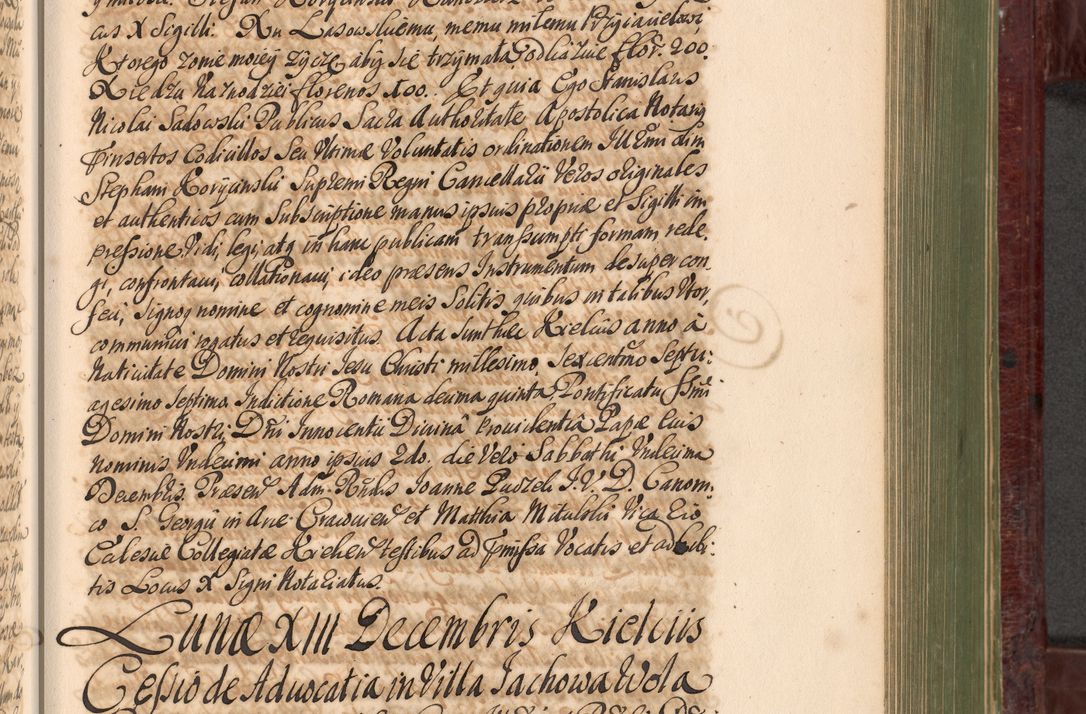 cus X Sigilli. Xu Lasowskiemu, memu milemu Przyiacielowi,
Ktorego zonie moiey zycze, aby sie trzymała, odliczne flor 200.
Xiedzu Kaznodziei florenos 100. Et quia Ego Stanislaus
Nicolai Sadowski Publicus Sacra Authoritate Apostolica Notariq
pinsertos Codicillos Seu Vltimæ Voluntatis ordinationem Illmi olim
Stephani Korycinski Supremi Regni Cancellarii Veros originales
et authenticos cum Subscriptione manus ipsius propriæ et Sigilli im
pressione Vidi, legi, atq in hanc publicam transsumpti formam rede.
gi, confrontavi, collationavi, ideo præsens Instrumentum desuper con
feci, Signoq nomine et cognomine meis Solitis quibus in talibus Vtor,
communivi rogatus et requisitus. Acta sunt hæc Kielciis anno à
Nativitate Domini Nostri Jesu Christi millesimo, Sexcentmo Septu:
agesimo Septimo Indictione Romana decima quinta, Pontificatu Ssmi
Domini Nostri, Dni Innocentii Divinâ Providentiâ Papæ Eius
nominis Vndecimi anno ipsius 2do. die Vero Sabbathi Vndecima
Decembris. Præsen Adm. Rndis Ioanne J. V. D. Canoni
co S. Georgii in Arce Cracovien et Matthia Mitulski Vica Ero
Ecclesiæ Collegiatæ Kielcen testibus ad pmissa Vocatis et adhibi:
tis Locus X Signi Notariatus.
Lunæ XIII Decembris Kielciis
Cessio de Aduocatia in Villa Jachowa Wola